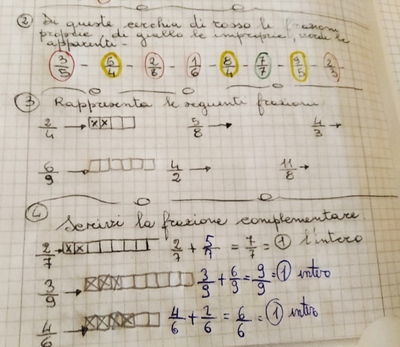 ② Di queste cerchia di rosso le frazioni
proprie, di giallo le improprie, verde le
apparenti.
3/5 - 6/4 - 2/8 - 1/6 - 8/4 - 7/7 - 9/5 - 2/3
③ Rappresenta le seguenti frazioni
2/4 → x x 5/8 → 4/3 →
6/9 → 4/2 → 11/8 →
④ Scrivi la frazione complementare
2/7 → x x 2/7 + 5/7 = 7/7 = ① l'intero
3/9 → x x x 3/9 + 6/9 = 9/9 = ① intero
4/6 → x x x x 4/6 + 2/6 = 6/6 = ① intero